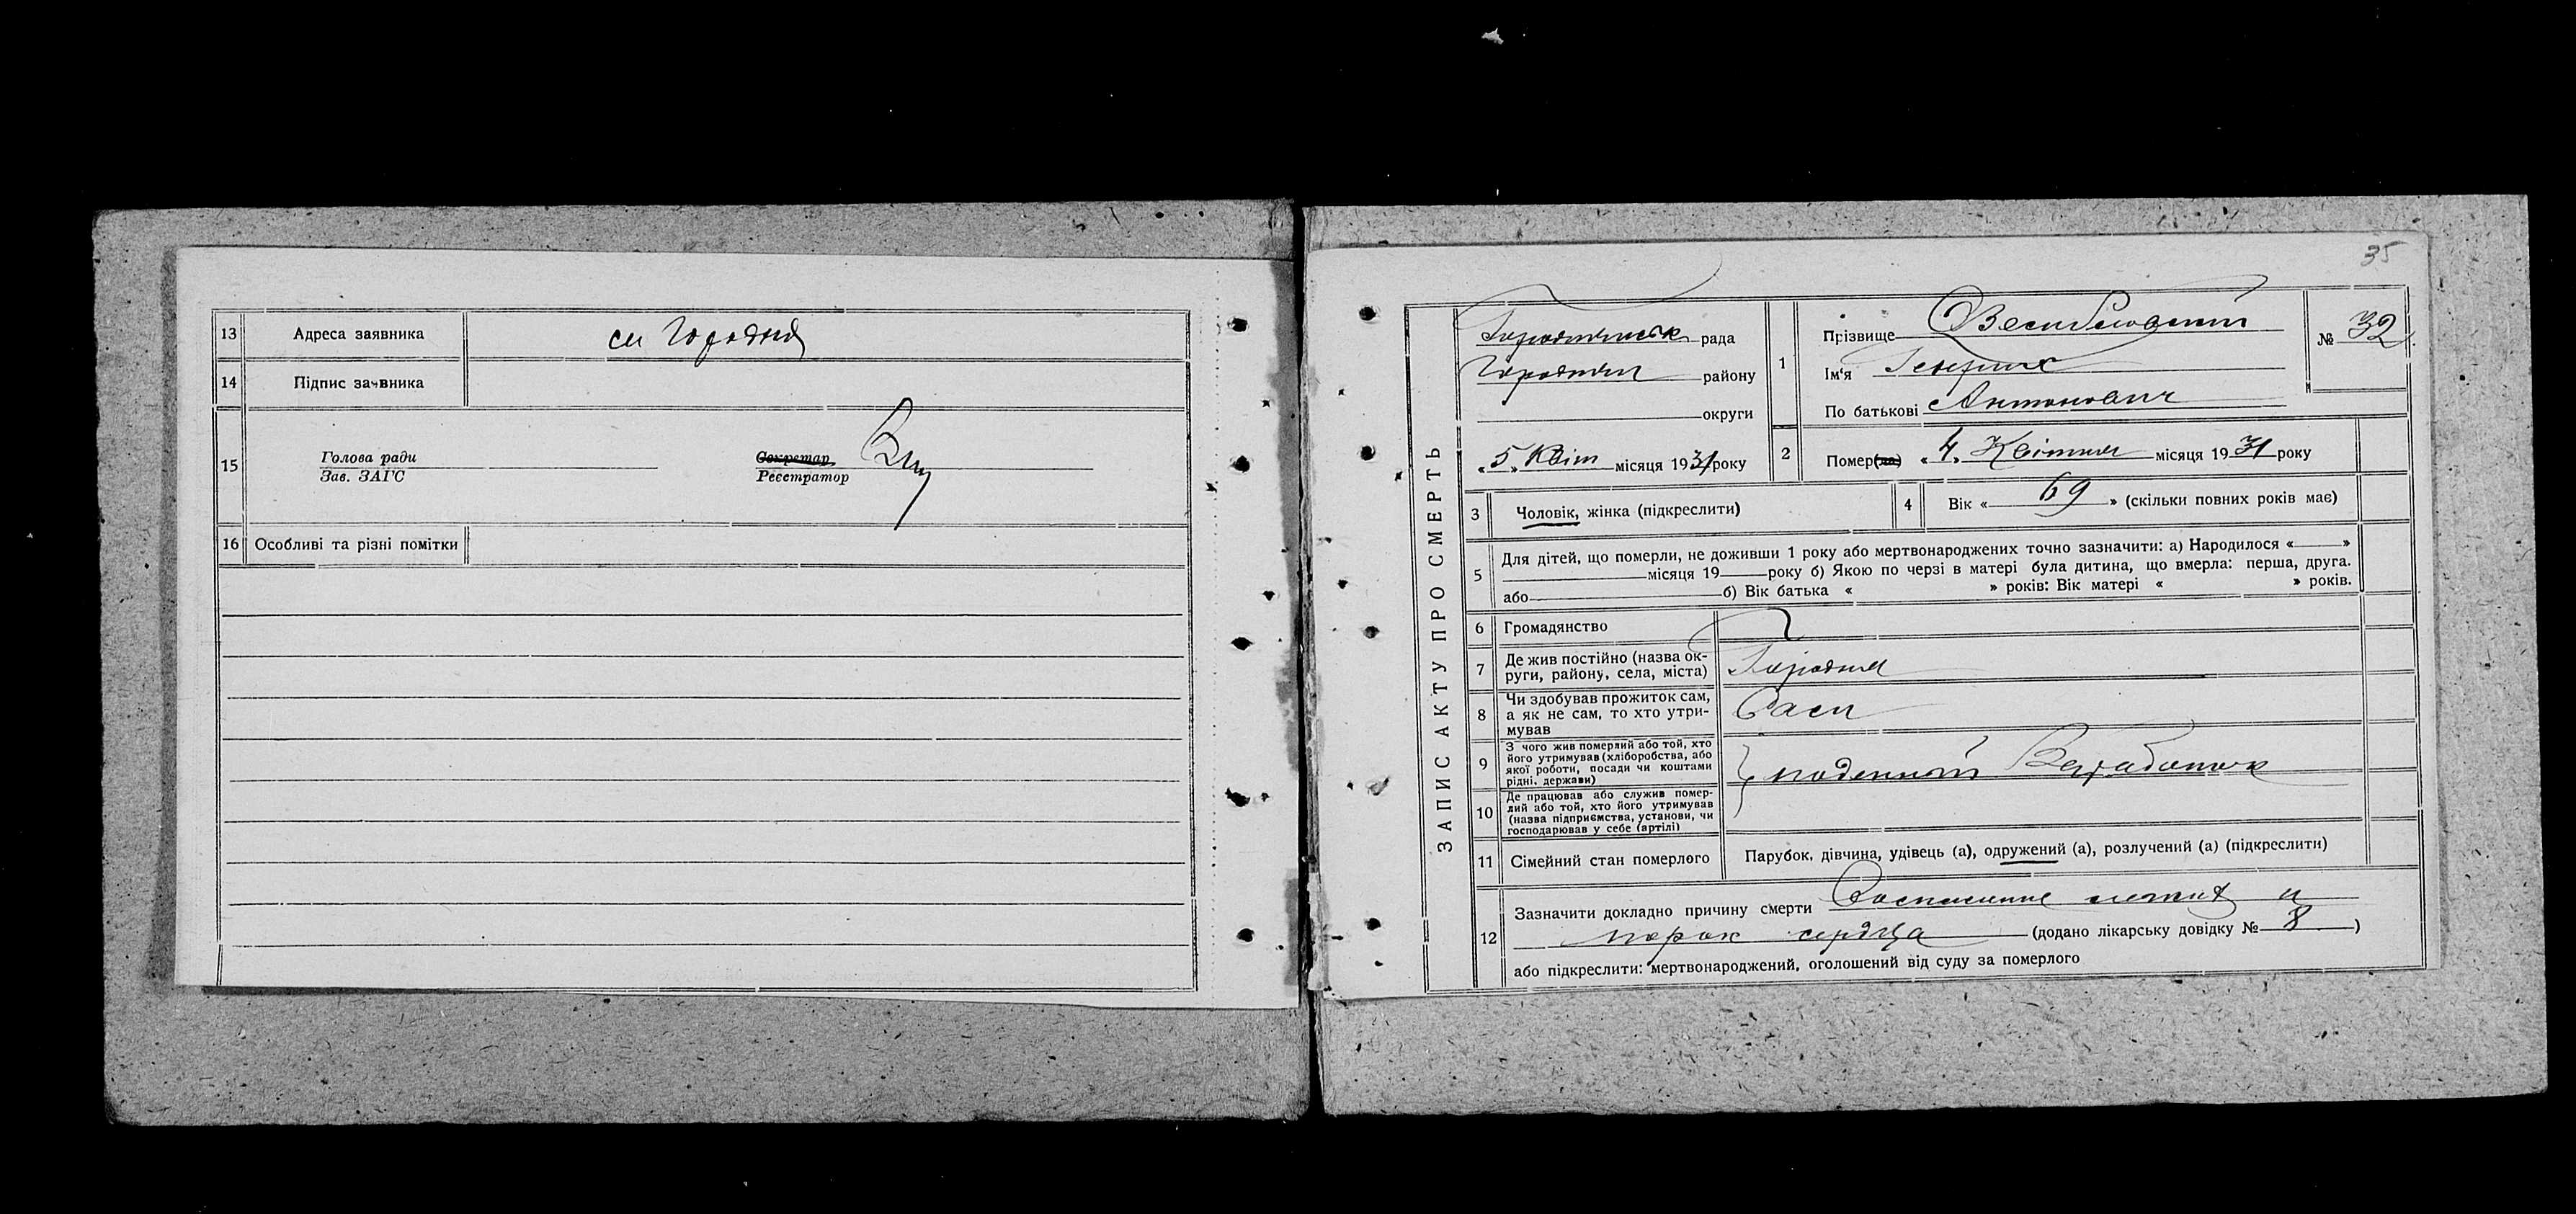 13 Адреса заявника см Городня
14 Підпис заявника
15 Голова ради
Зав. ЗАГС
Секретар
Реєстратор
16 Особливі та різні помітки
35
ЗАПИС АКТУ ПРО СМЕРТЬ
Городнянськ рада
Городнян району
округи
«5» Квіт місяця 1931 року
1 Прізвище
Ім'я Генрих
По батькові Антонович
№ 32
2 Помер(ла) «4» Квітня місяця 1931 року
3 Чоловік, жінка (підкреслити)
4 Вік « 69 » (скільки повних років має)
5 Для дітей, що померли, не доживши 1 року або мертвонароджених точно зазначити: а) Народилося « »
місяця 19 року б) Якою по черзі в матері була дитина, що вмерла: перша, друга.
або б) Вік батька « » років: Вік матері « » років.
6 Громадянство
7 Де жив постійно (назва ок-
руги, району, села, міста) Городня
8 Чи здобував прожиток сам,
а як не сам, то хто утри-
мував Сам
9 З чого жив померлий або той, хто
його утримував (хліборобства, або
якої роботи, посади чи коштами
рідні, держави) поденный Заработок
10 Де працював або служив помер-
лий або той, хто його утримував
(назва підприємства, установи, чи
господарював у себе (артілі)
11 Сімейний стан померлого Парубок, дівчина, удівець (а), одружений (а), розлучений (а) (підкреслити)
12 Зазначити докладно причину смерти и
порок сердца (додано лікарську довідку № 8 )
або підкреслити: мертвонароджений, оголошений від суду за померлого